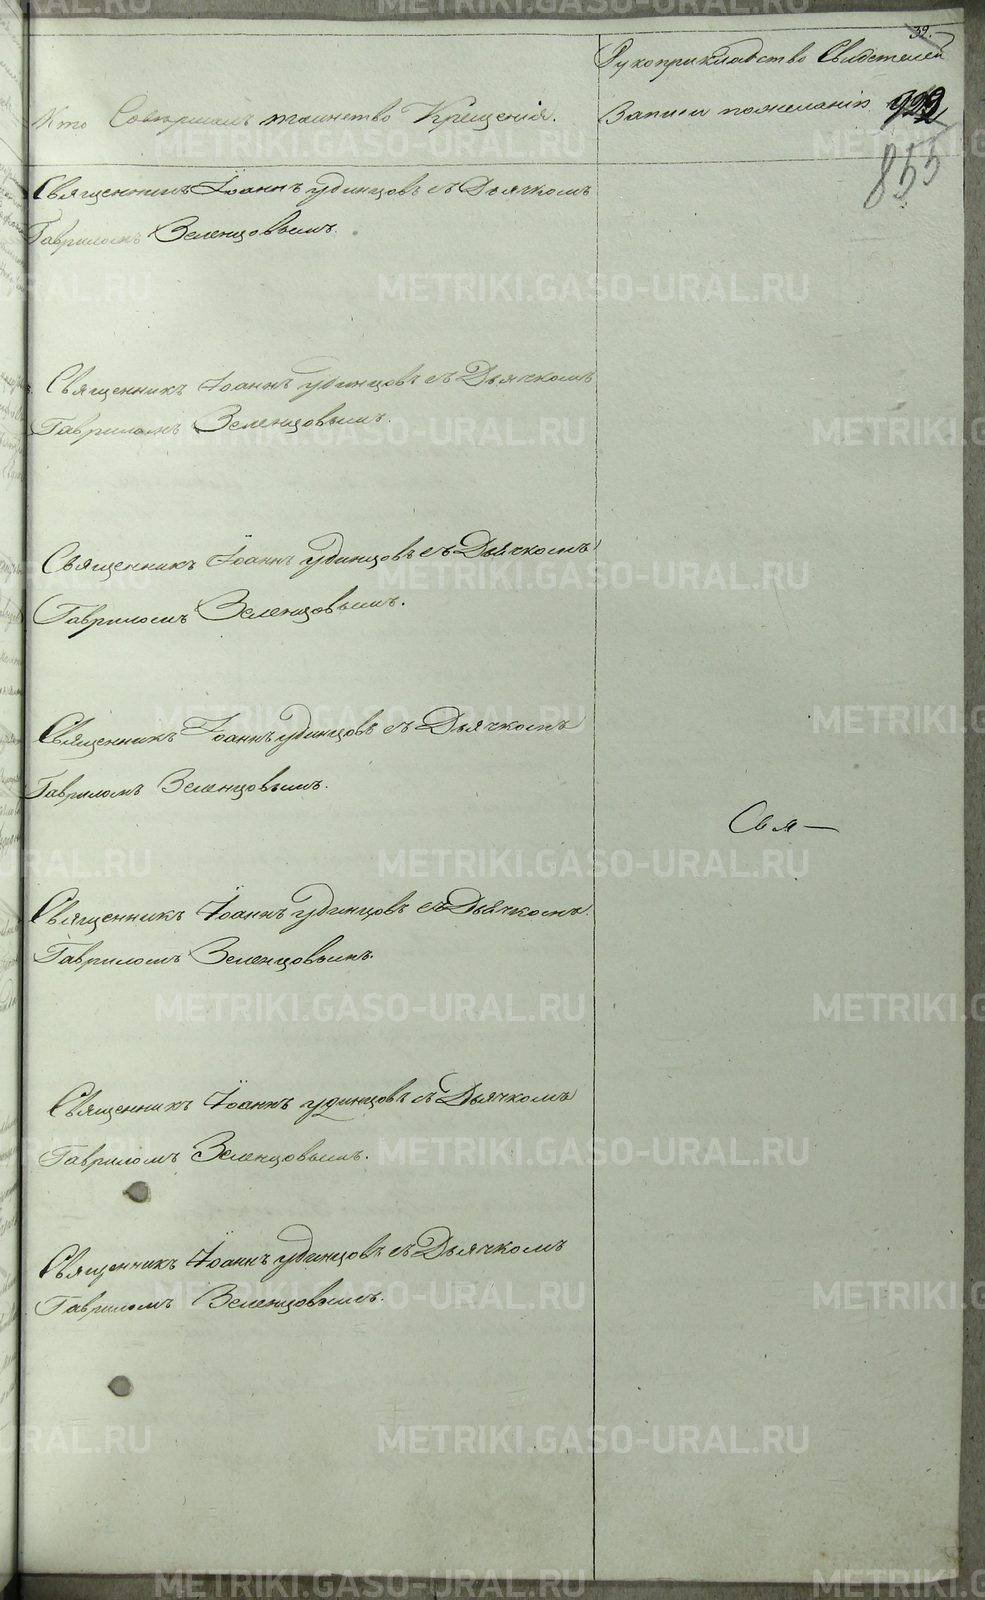 39.
Рукоприкладство Свидетелей
Кто Совершалъ таинство Крещенія.
Записи пожеланію
922
855
Священникъ Іоаннъ Удинцовъ съ Дьячкомъ
Гавриломъ Зеленцовымъ.
Священникъ Іоаннъ Удинцовъ съ Дьячкомъ
Гавриломъ Зеленцовымъ.
Священникъ Іоаннъ Удинцовъ съ Дьячкомъ
Гавриломъ Зеленцовымъ.
Священникъ Іоаннъ Удинцовъ съ Дьячкомъ
Гавриломъ Зеленцовымъ.
Свя—
Священникъ Іоаннъ Удинцовъ съ Дьячкомъ.
Гавриломъ Зеленцовымъ.
Священникъ Іоаннъ Удинцовъ съ Дьячкомъ
Гавриломъ Зеленцовымъ.
Священникъ Іоаннъ Удинцовъ съ Дьячкомъ
Гавриломъ Зеленцовымъ.
METRIKI.GASO-URAL.RU